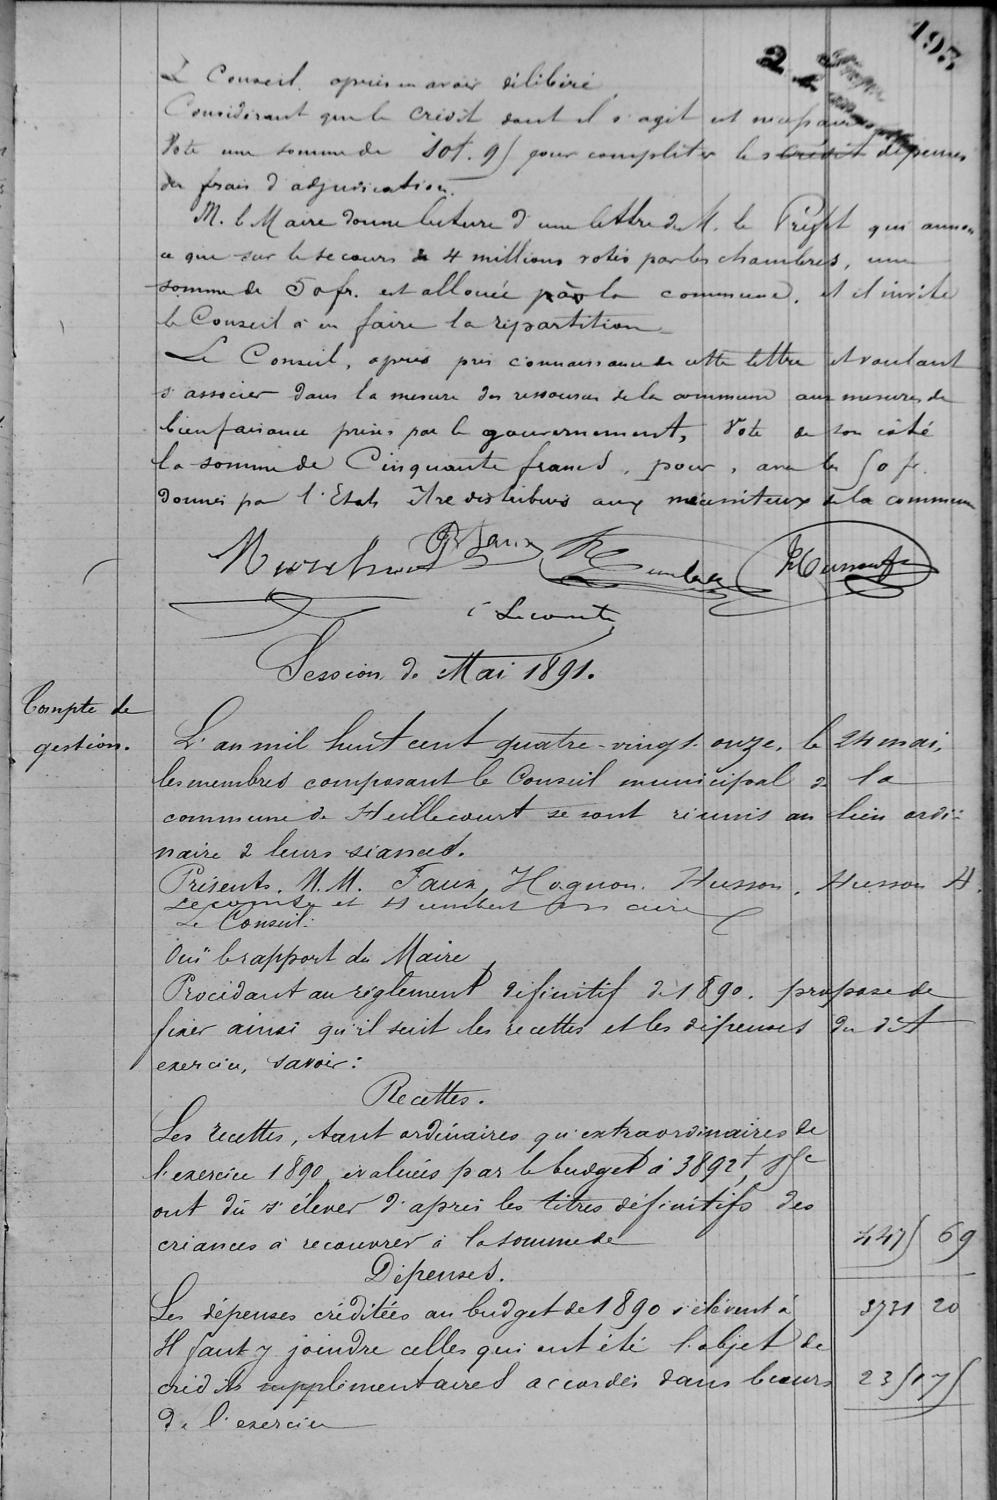 193
2
Le Conseil, après en avoir délibéré,
Considérant que le crédit dont il s'agit est
Vote une somme de 10f.95 pour compléter les crédit dépenses
des frais d'adjudication.
M. le Maire donne lecture d'une lettre de M. le Préfet qui annon
ce que sur le secours de 4 millions votés par les chambres, une
somme de 50 fr. est allouée à la commune, et il invite
le Conseil à en faire la répartition.
Le Conseil, après pris connaissance de cette lettre et voulant
s'associer dans la mesure des ressources de la commune aux mesures de
bienfaisance prises par le gouvernement, Vote de son côté
la somme de Cinquante francs, pour, avec les 50 fr.
donnés par l'Etat, être distribués aux nécessiteux de la commune
Faux Humbert
Lecomte
Session de Mai 1891.
Compte de
gestion.
L'an mil huit cent quatre-vingt-onze, le 24 mai,
les membres composant le Conseil municipal de la
commune de Heillecourt se sont réunis au lieu ordi-
naire de leurs séances.
Présents. M.M. Faux, Hognon, Husson, Husson H.
Lecomte et Humbert maire
Le Conseil:
Ouï le rapport du Maire,
Procédant au règlement définitif de 1890, propose de
fixer ainsi qu'il suit les recettes et les dépenses du dit
exercice, savoir:
Recettes.
Les recettes, tant ordinaires qu'extraordinaires de
l'exercice 1890, évaluées par le budget à 3892f,
ont dû s'élever d'après les titres définitifs des
créances à recouvrer à la somme de 4475 69
Dépenses.
Les dépenses créditées au budget de 1890 s'élèvent à 3731 20
Il faut y joindre celles qui ont été l'objet de
crédits supplémentaires accordés dans le cours 2351 75
de l'exercice